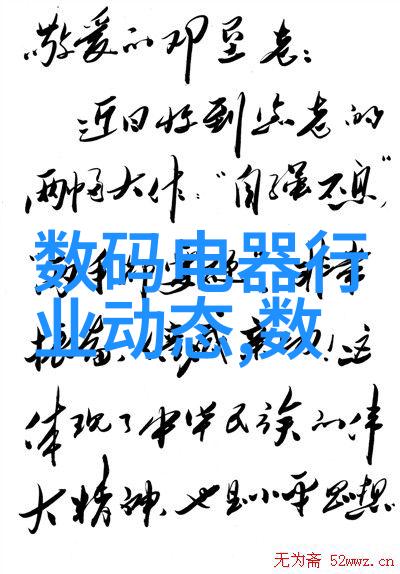 敬爱的邓垦老：
近日收到邓老的
两幅大作：“自强不息”
数码电器行
业动态,数
这
体现了中华民族的伟
大精神，也是小平思想
无为斋 52wwz.cn